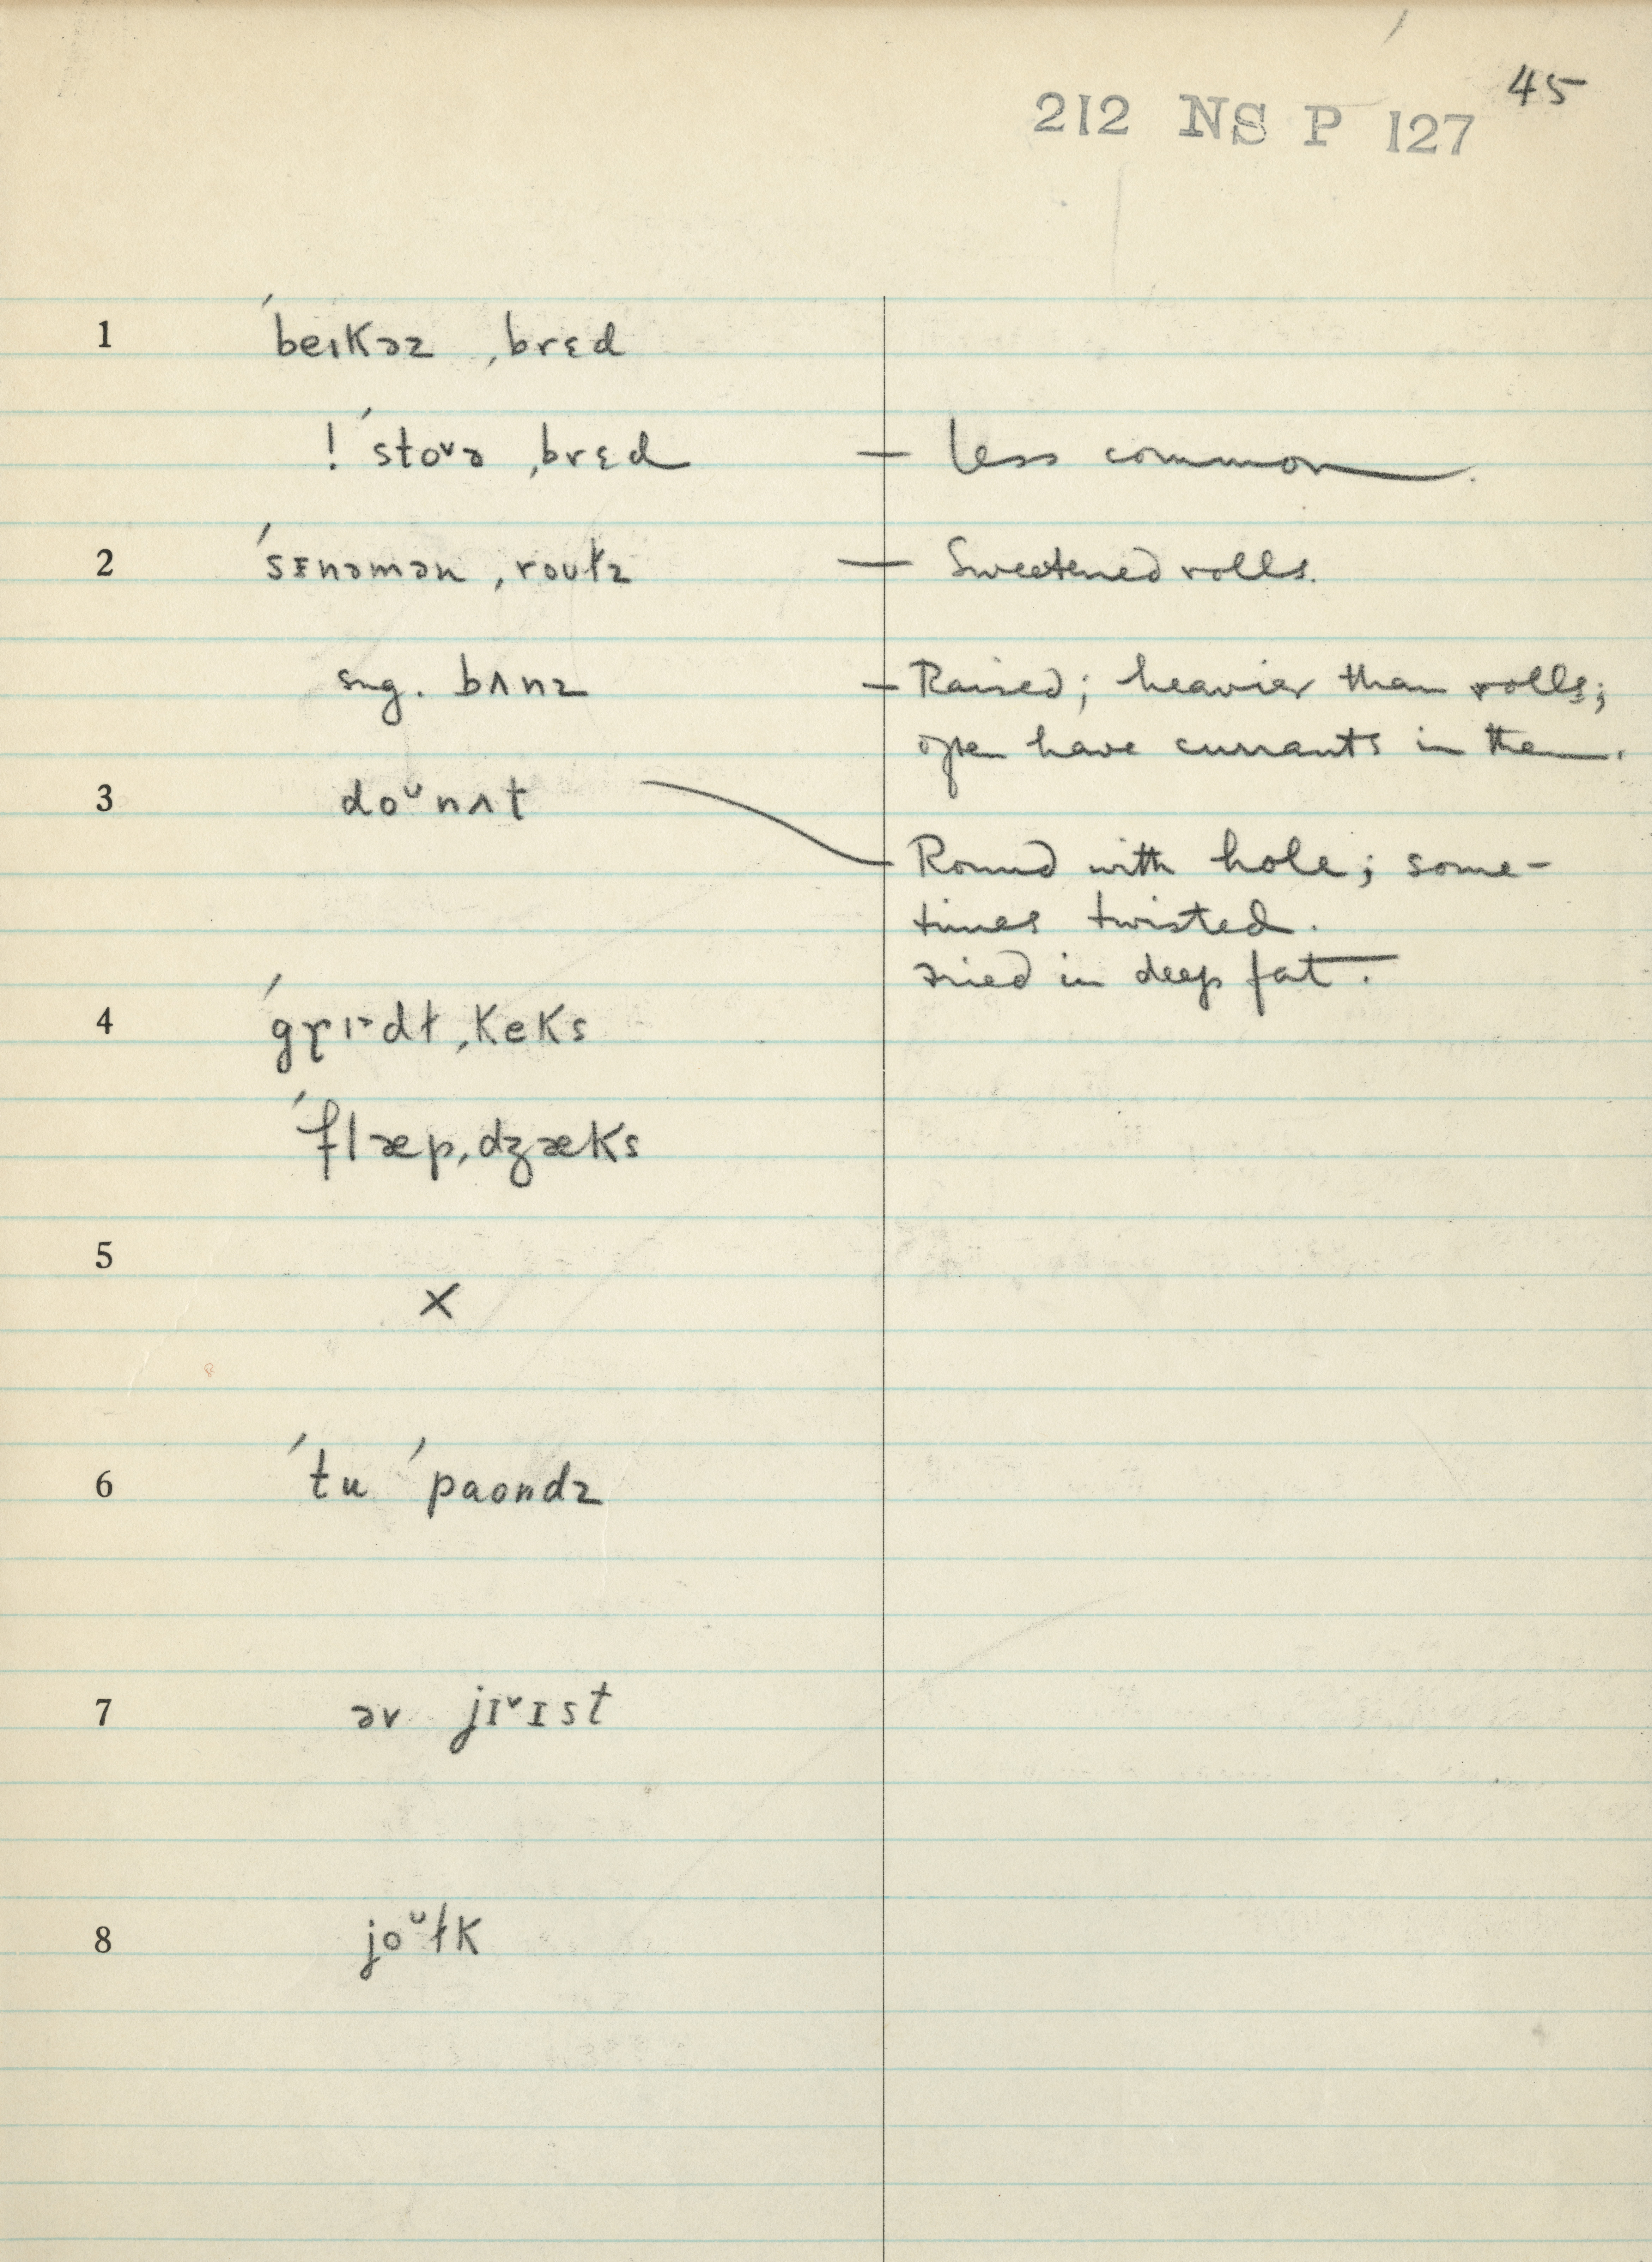 45
212 NS P 127
1 ˈbeɪkəz ˌbrɛd
! ˈstoᵛə ˌbrɛd — less common.
2 ˈsɪnəmən ˌroʊɫz — Sweetened rolls.
sug. bʌnz — Raised; heavier than rolls;
often have currants in them.
3 doᵘnʌt
Round with hole; some-
times twisted.
fried in deep fat.
4 ˈgrɪdɫ ˌkeks
ˈflæp ˌdʒæks
5
x
6 ˈtu ˈpaʊndz
7 əv jɪᵛɪst
8 joᵘɫk